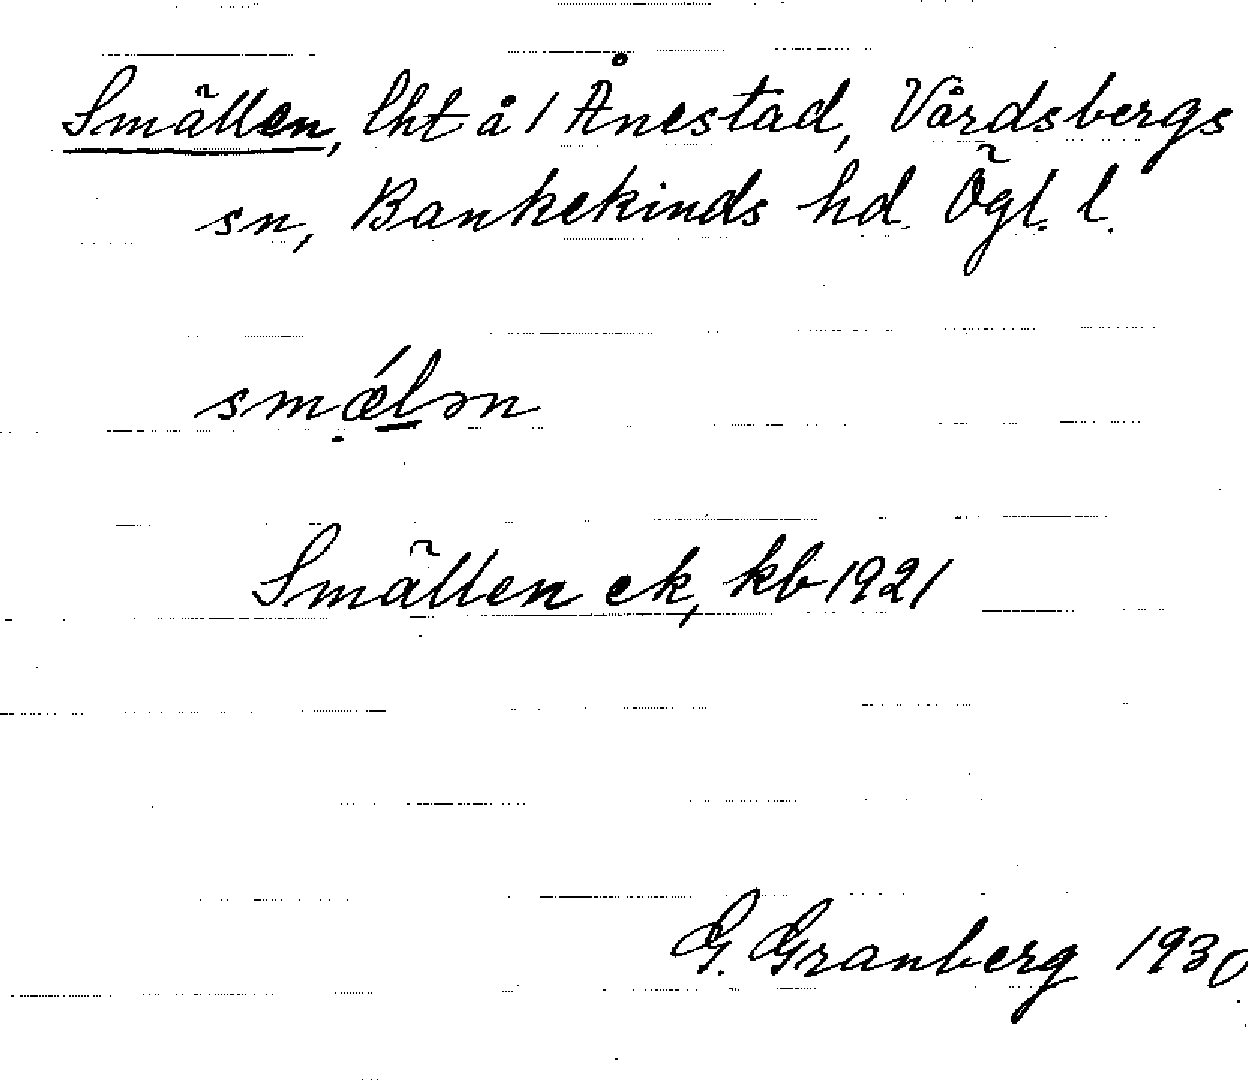 Smällen, lht å 1 Ånestad, Vårdsbergs
sn, Bankekinds hd. Ögl. l.
smǽlən
Smällen ek, kb 1921
G. Granberg 1930